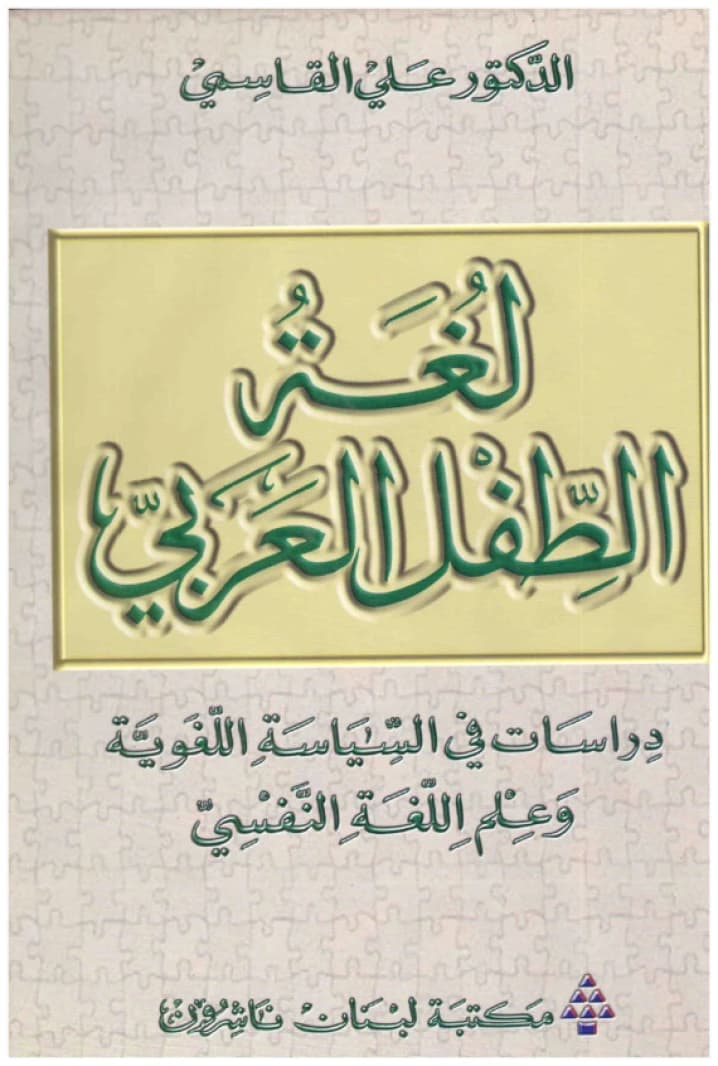 الدَّكتور عَلي القَاسِمِيْ
لُغَةُ
الطِّفْل العَرَبيِّ
دِراسَات في السِّيَاسَةِ اللّغَويَّة
وَعِلم اللّغَةِ النَّفْسِيّ
مَكتبَة لبْنَان نَاشِرُون